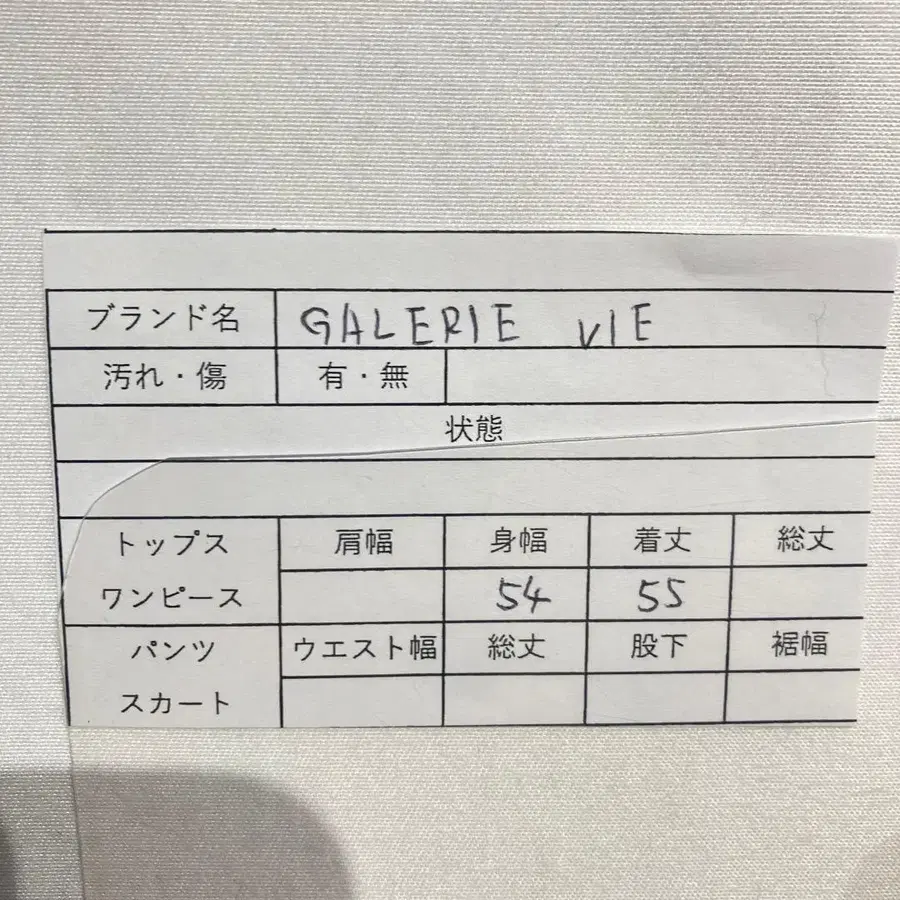 ブランド名 GALERIE VIE
汚れ・傷 有・無
状態
トップス 肩幅 身幅 着丈 総丈
ワンピース 54 55
パンツ ウエスト幅 総丈 股下 裾幅
スカート